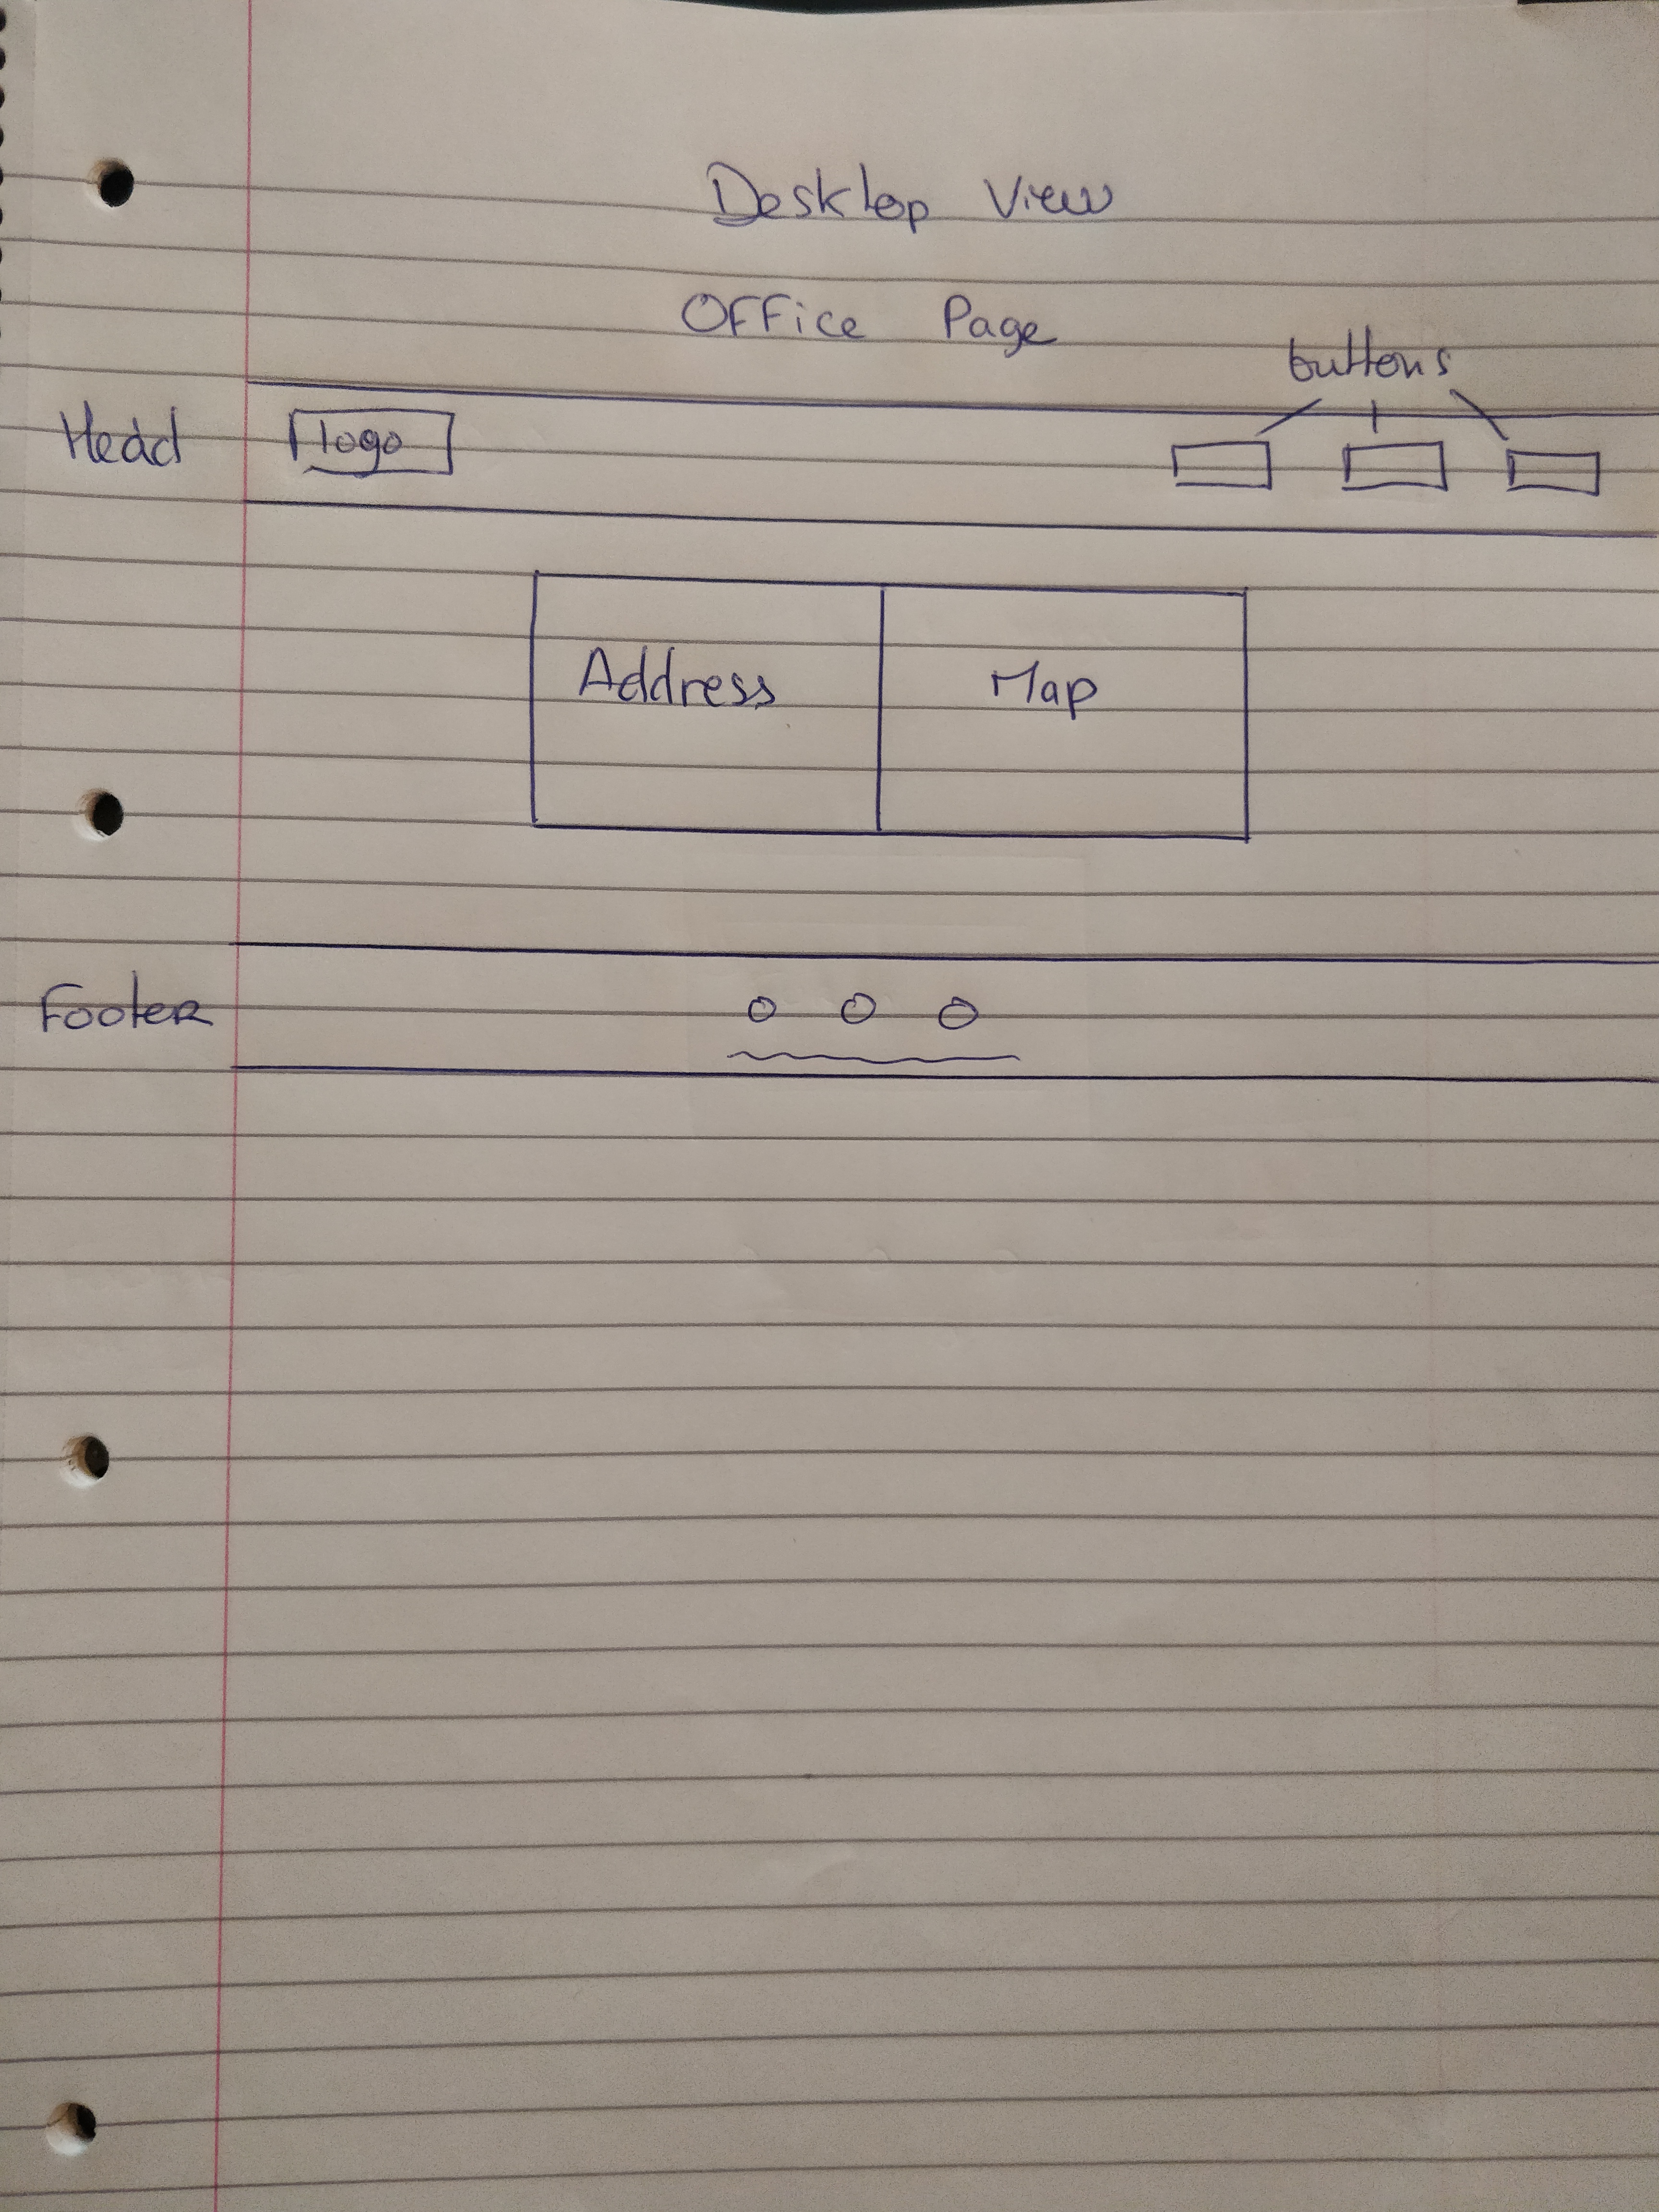 Desktop View
Office Page
buttons
Head
logo
Address
Map
Footer